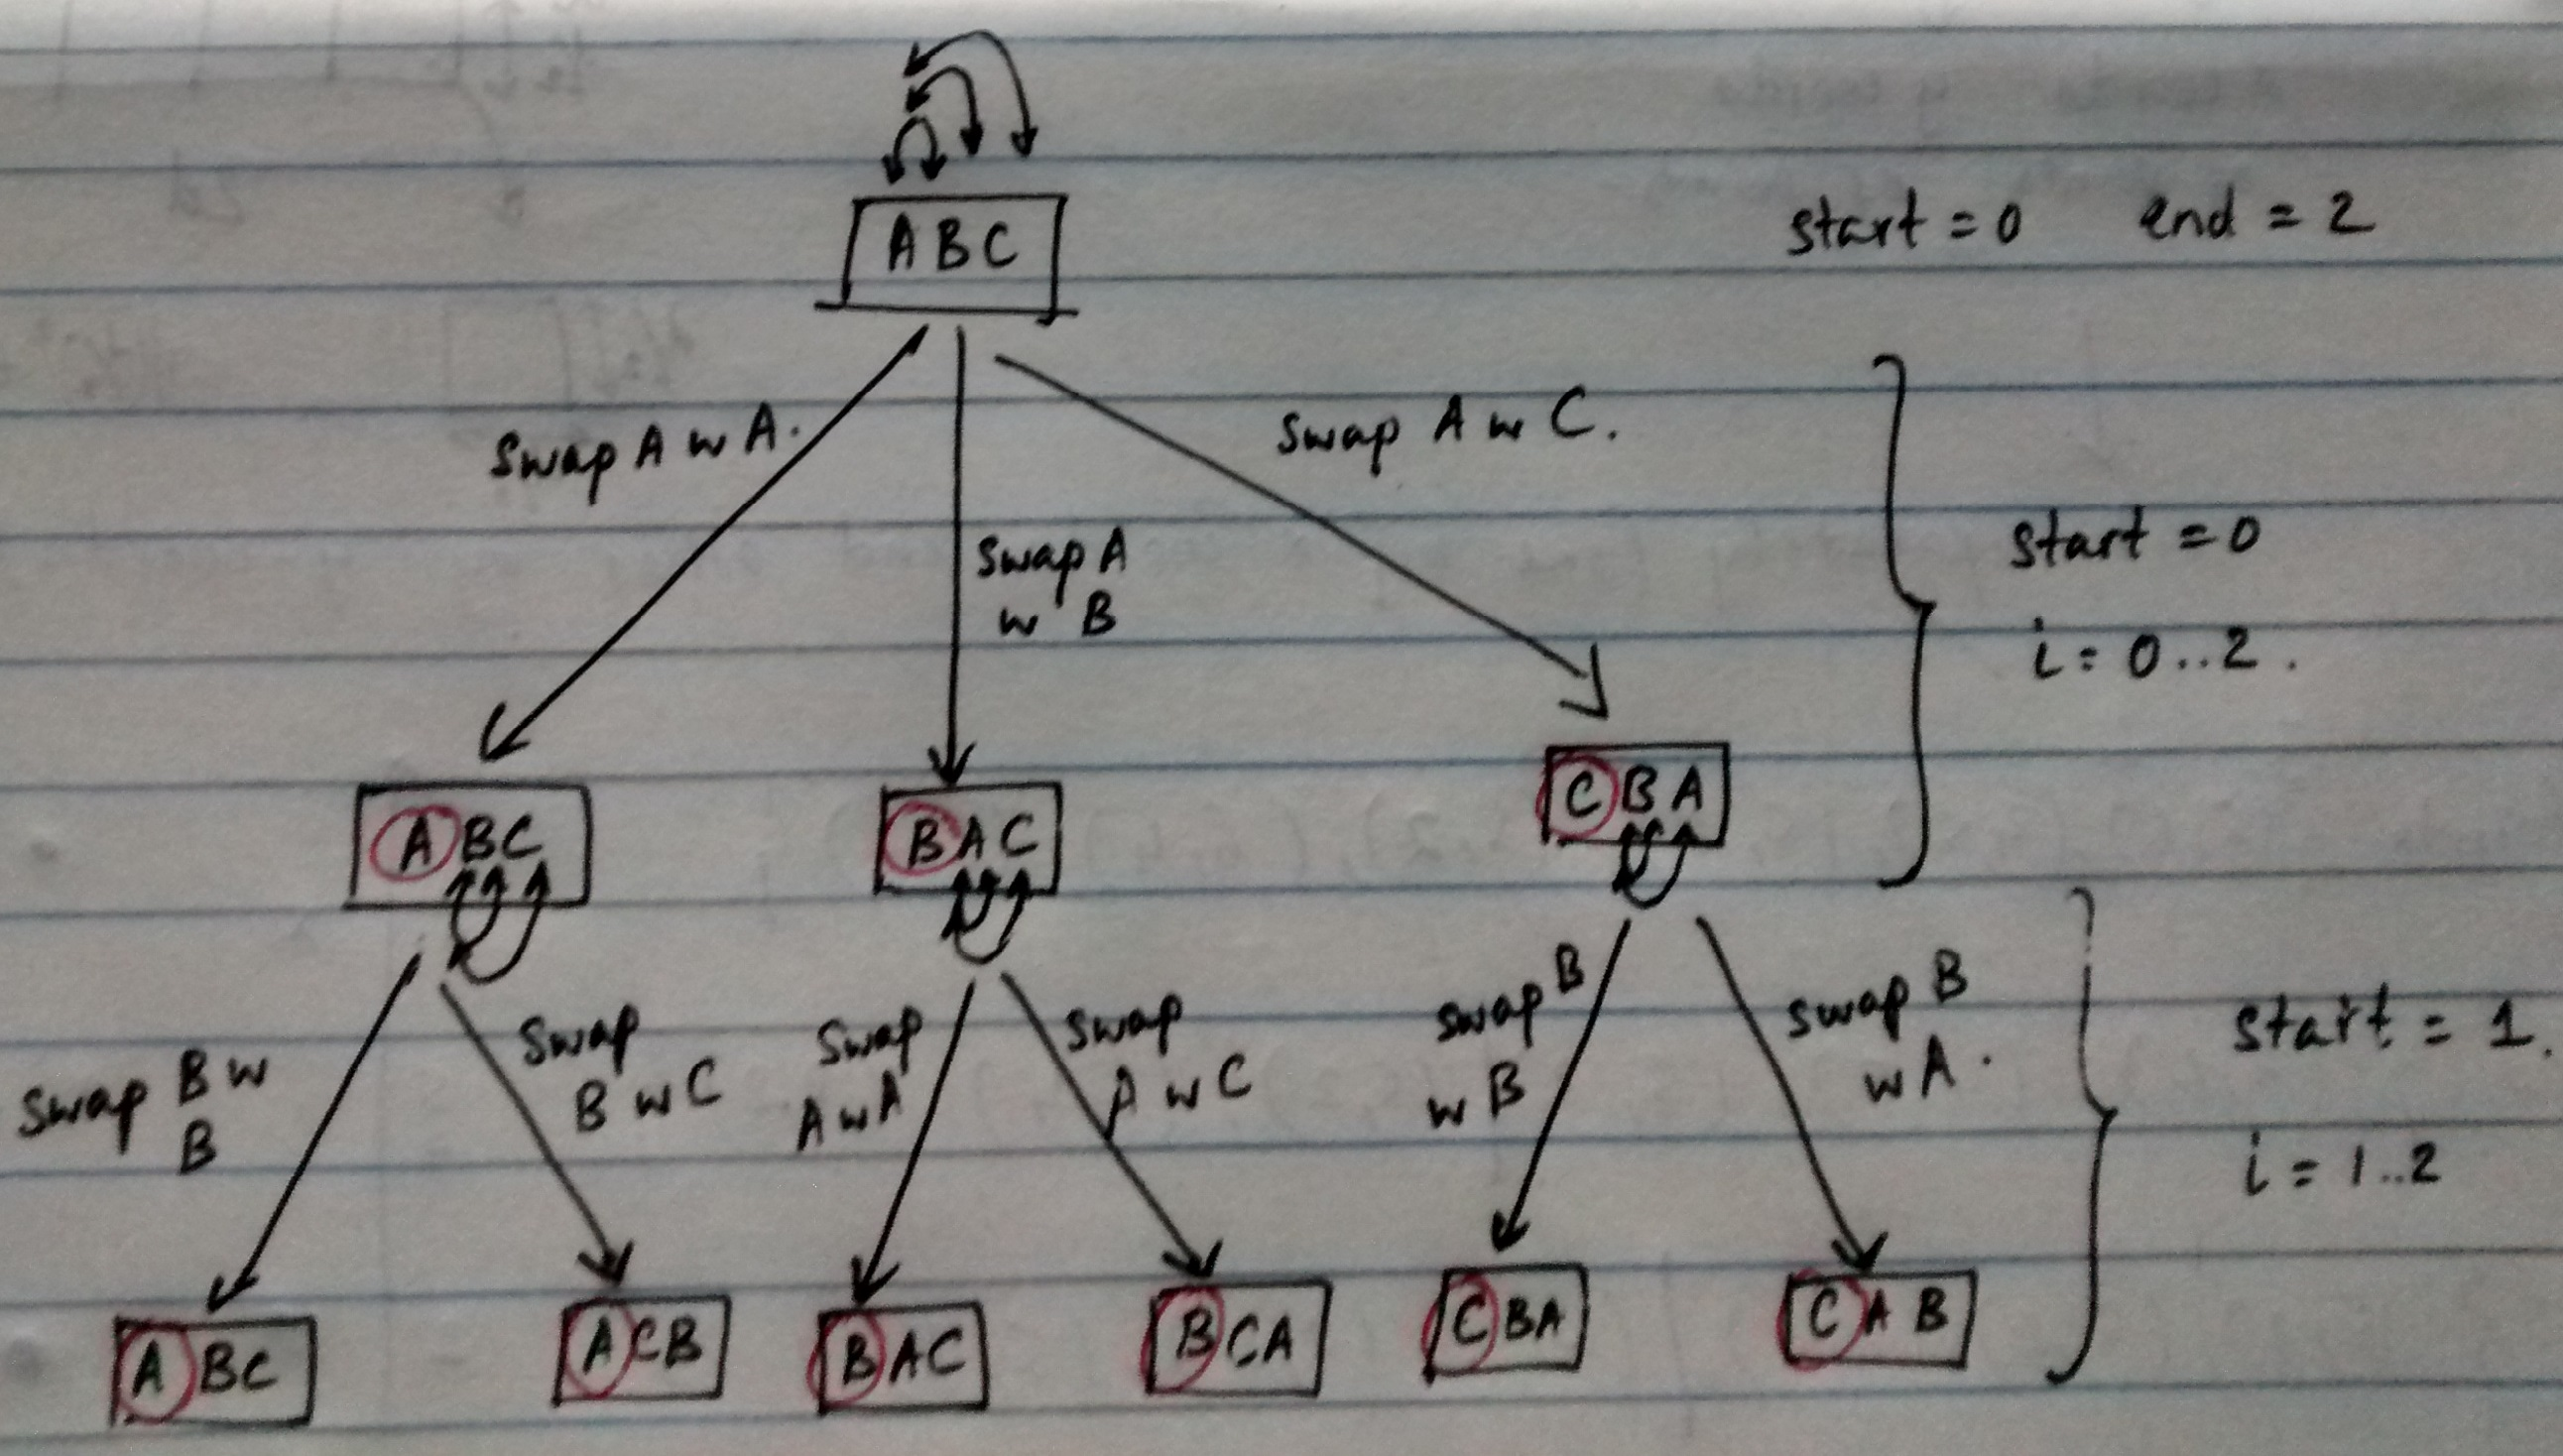 ABC
start = 0 end = 2
Swap A w A.
Swap A w C.
Swap A
w B
start = 0
i = 0..2.
ABC
BAC
CBA
Swap B w
B
Swap
B w C
Swap
A w A
Swap
A w C
Swap B
w B
Swap B
w A.
start = 1.
i = 1..2
ABC
ACB
BAC
BCA
CBA
CAB